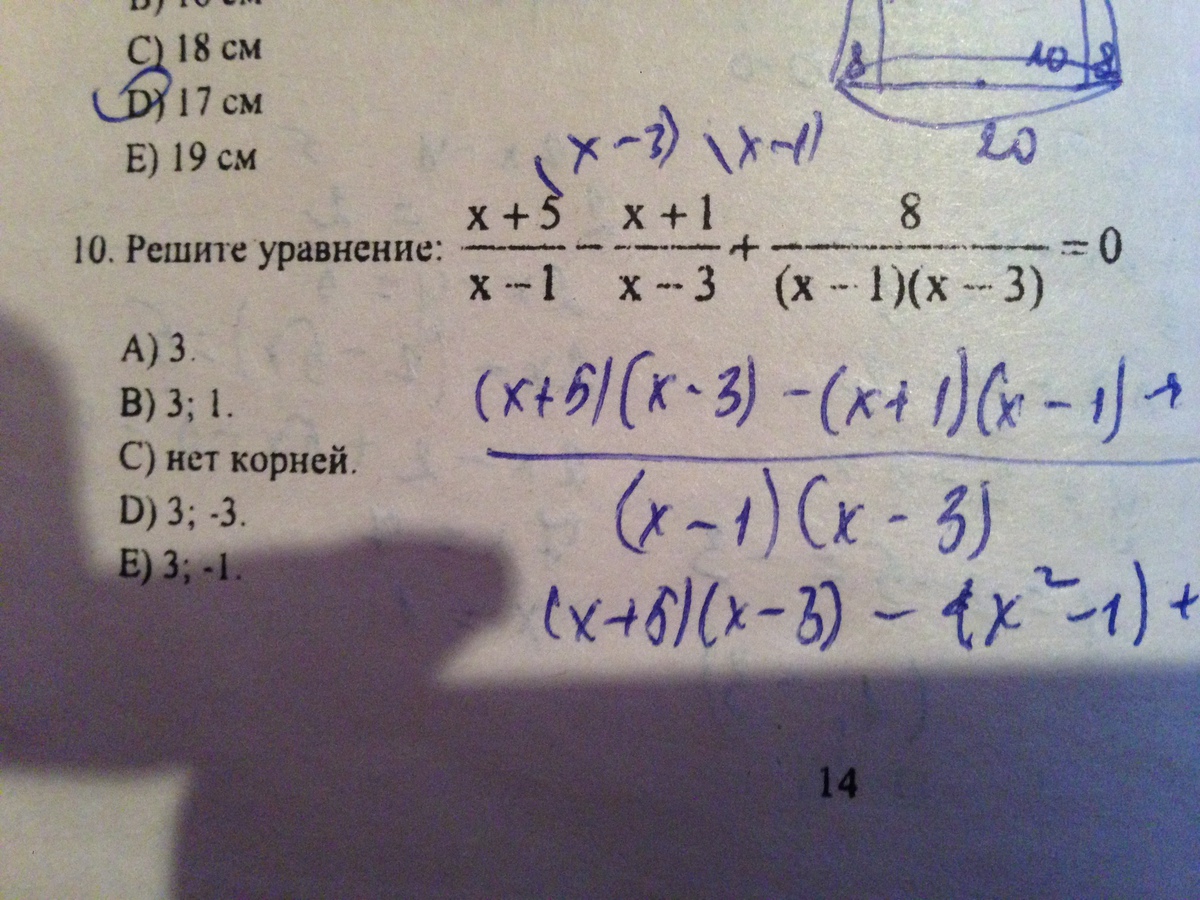 C) 18 см
D) 17 см
E) 19 см
8 10 8
20
x-3) x-1)
10. Решите уравнение: (x + 5)/(x - 1) - (x + 1)/(x - 3) + 8/((x - 1)(x - 3)) = 0
A) 3.
B) 3; 1.
C) нет корней.
D) 3; -3.
E) 3; -1.
(x+5)(x-3) - (x+1)(x-1) +
(x-1)(x-3)
(x+5)(x-3) - (x²-1) +
14